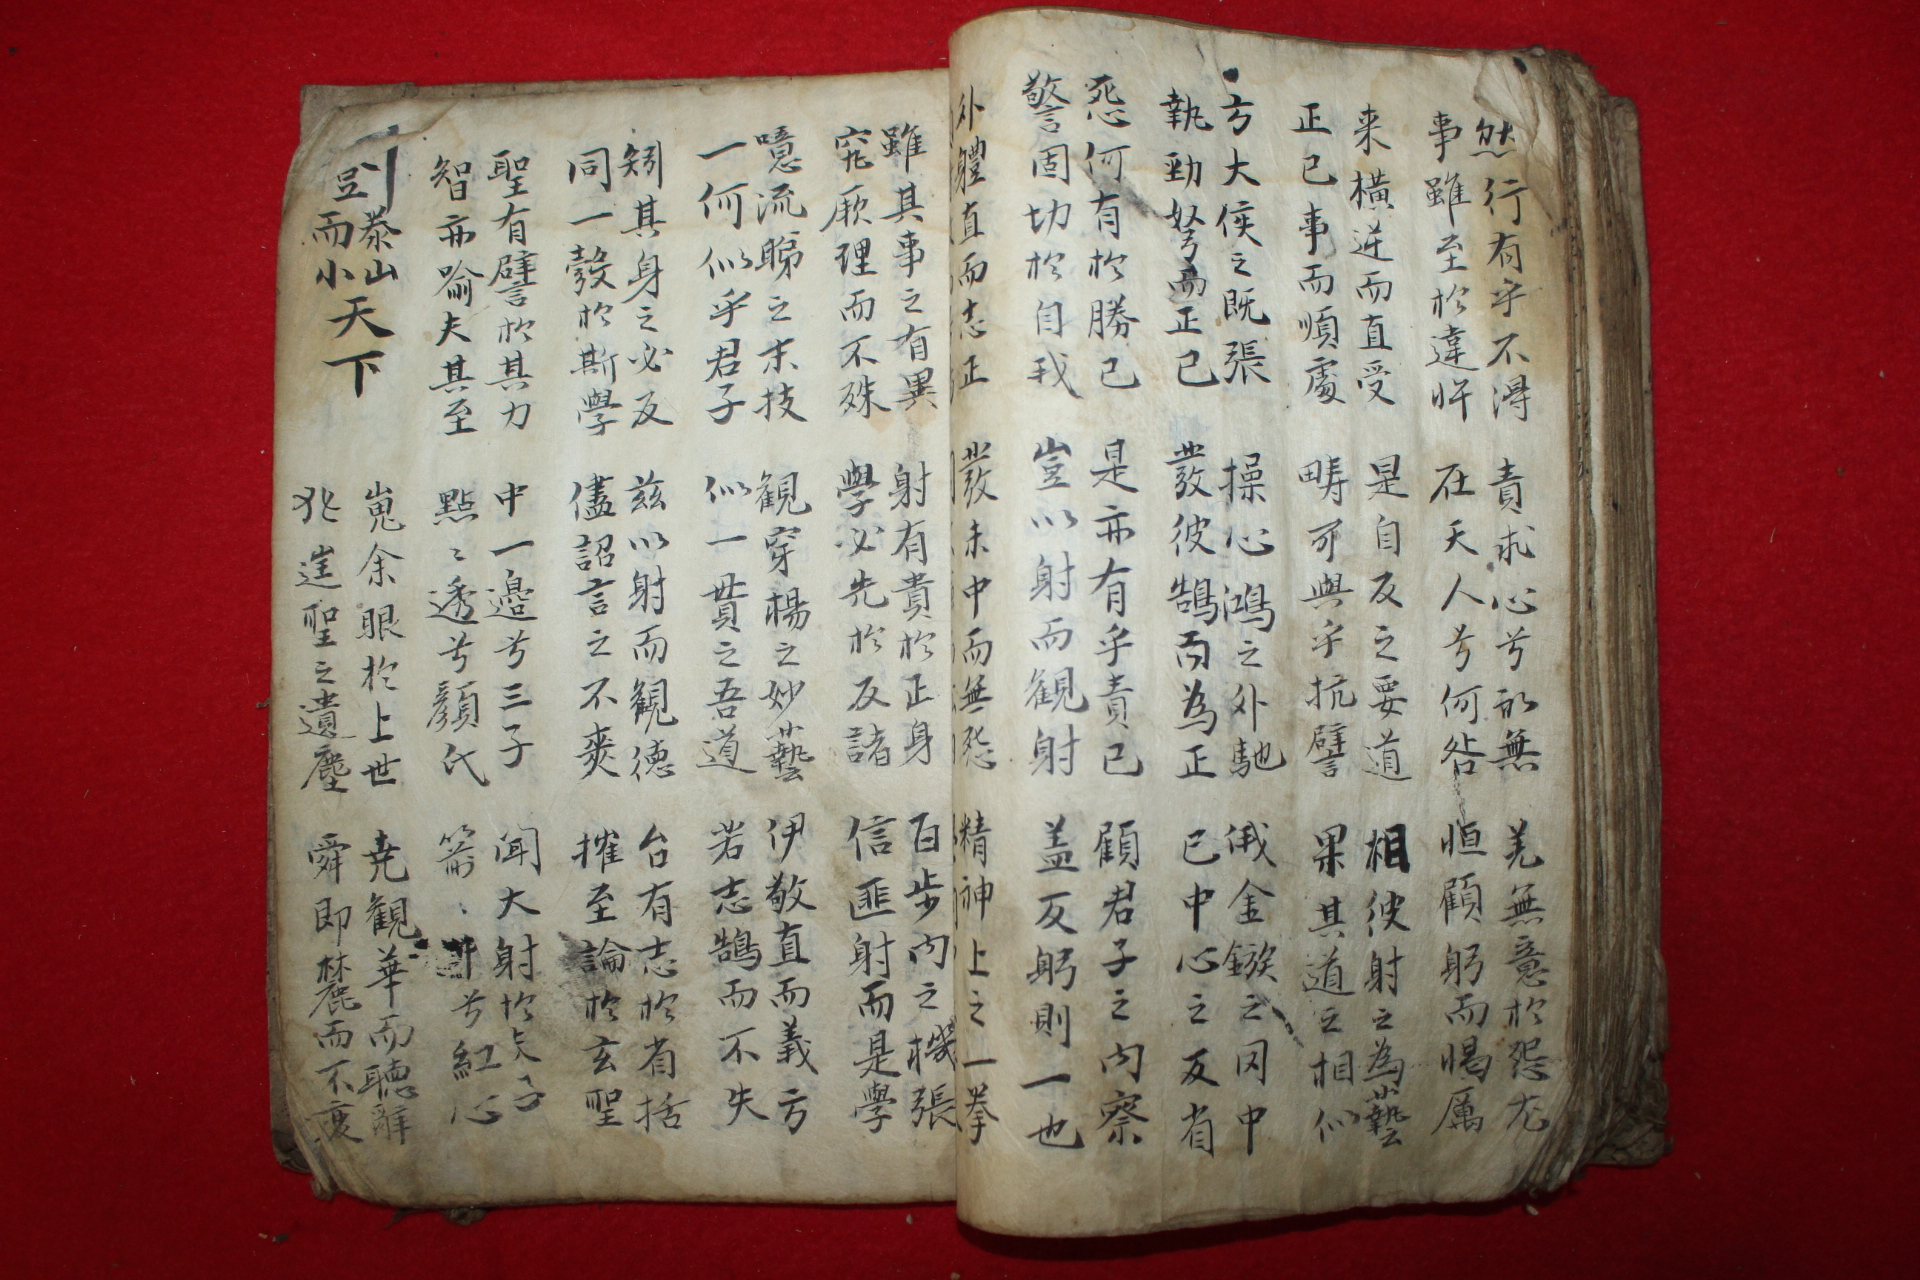 然行有乎不得　責求心兮無　羌無意於怨尤
事雖至於違　在天人兮何咎　恒顧躬而惕厲
来橫逆而直受　是自反之要道　相彼射之為藝
正已事而順處　疇可與乎抗譬　果其道之相似
方大侯之既張　操心鴻之外馳　俄金鏃之中
執勁弩而正已　發彼鵠而為正　已中心之反省
怨何有於勝己　是亦有乎責已　顧君子之内察
警固切於自我　豈以射而観射　盖反躬則一也
外軆直而志正　發未中而無怨　精神上之一拳
雖其事之有異　射有貴於正身　百步内之機張
究厥理而不殊　學必先於反諸　信匪射而是學
噫流睇之末技　観穿楊之妙藝　伊敬直而義方
一何似乎君子　似一貫之吾道　若志鵠而不失
矧其身之必反　兹以射而観德　台有志於省括
同一彀於斯學　儘詔言之不爽　摧至論於玄聖
聖有譬於其力　中一邉兮三子　闻大射於夫子
智亦喻夫其至　點〻透兮顔氏　箭〻兮紅心
泰山而小天下
嵬余眼於上世　尭観華而聽辭
聖之遺塵　舜即麓而不